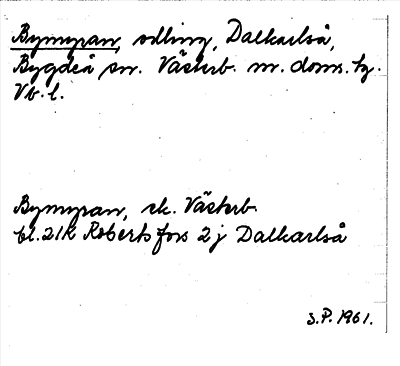 Bymyran, odling, Dalkarlså,
Bygdeå sn. Västerb. n. doms. tg.
Vb. l.
Bymyran, ek. Västerb.
bl. 21K Robertsfors 2 j Dalkarlså
S.P. 1961.